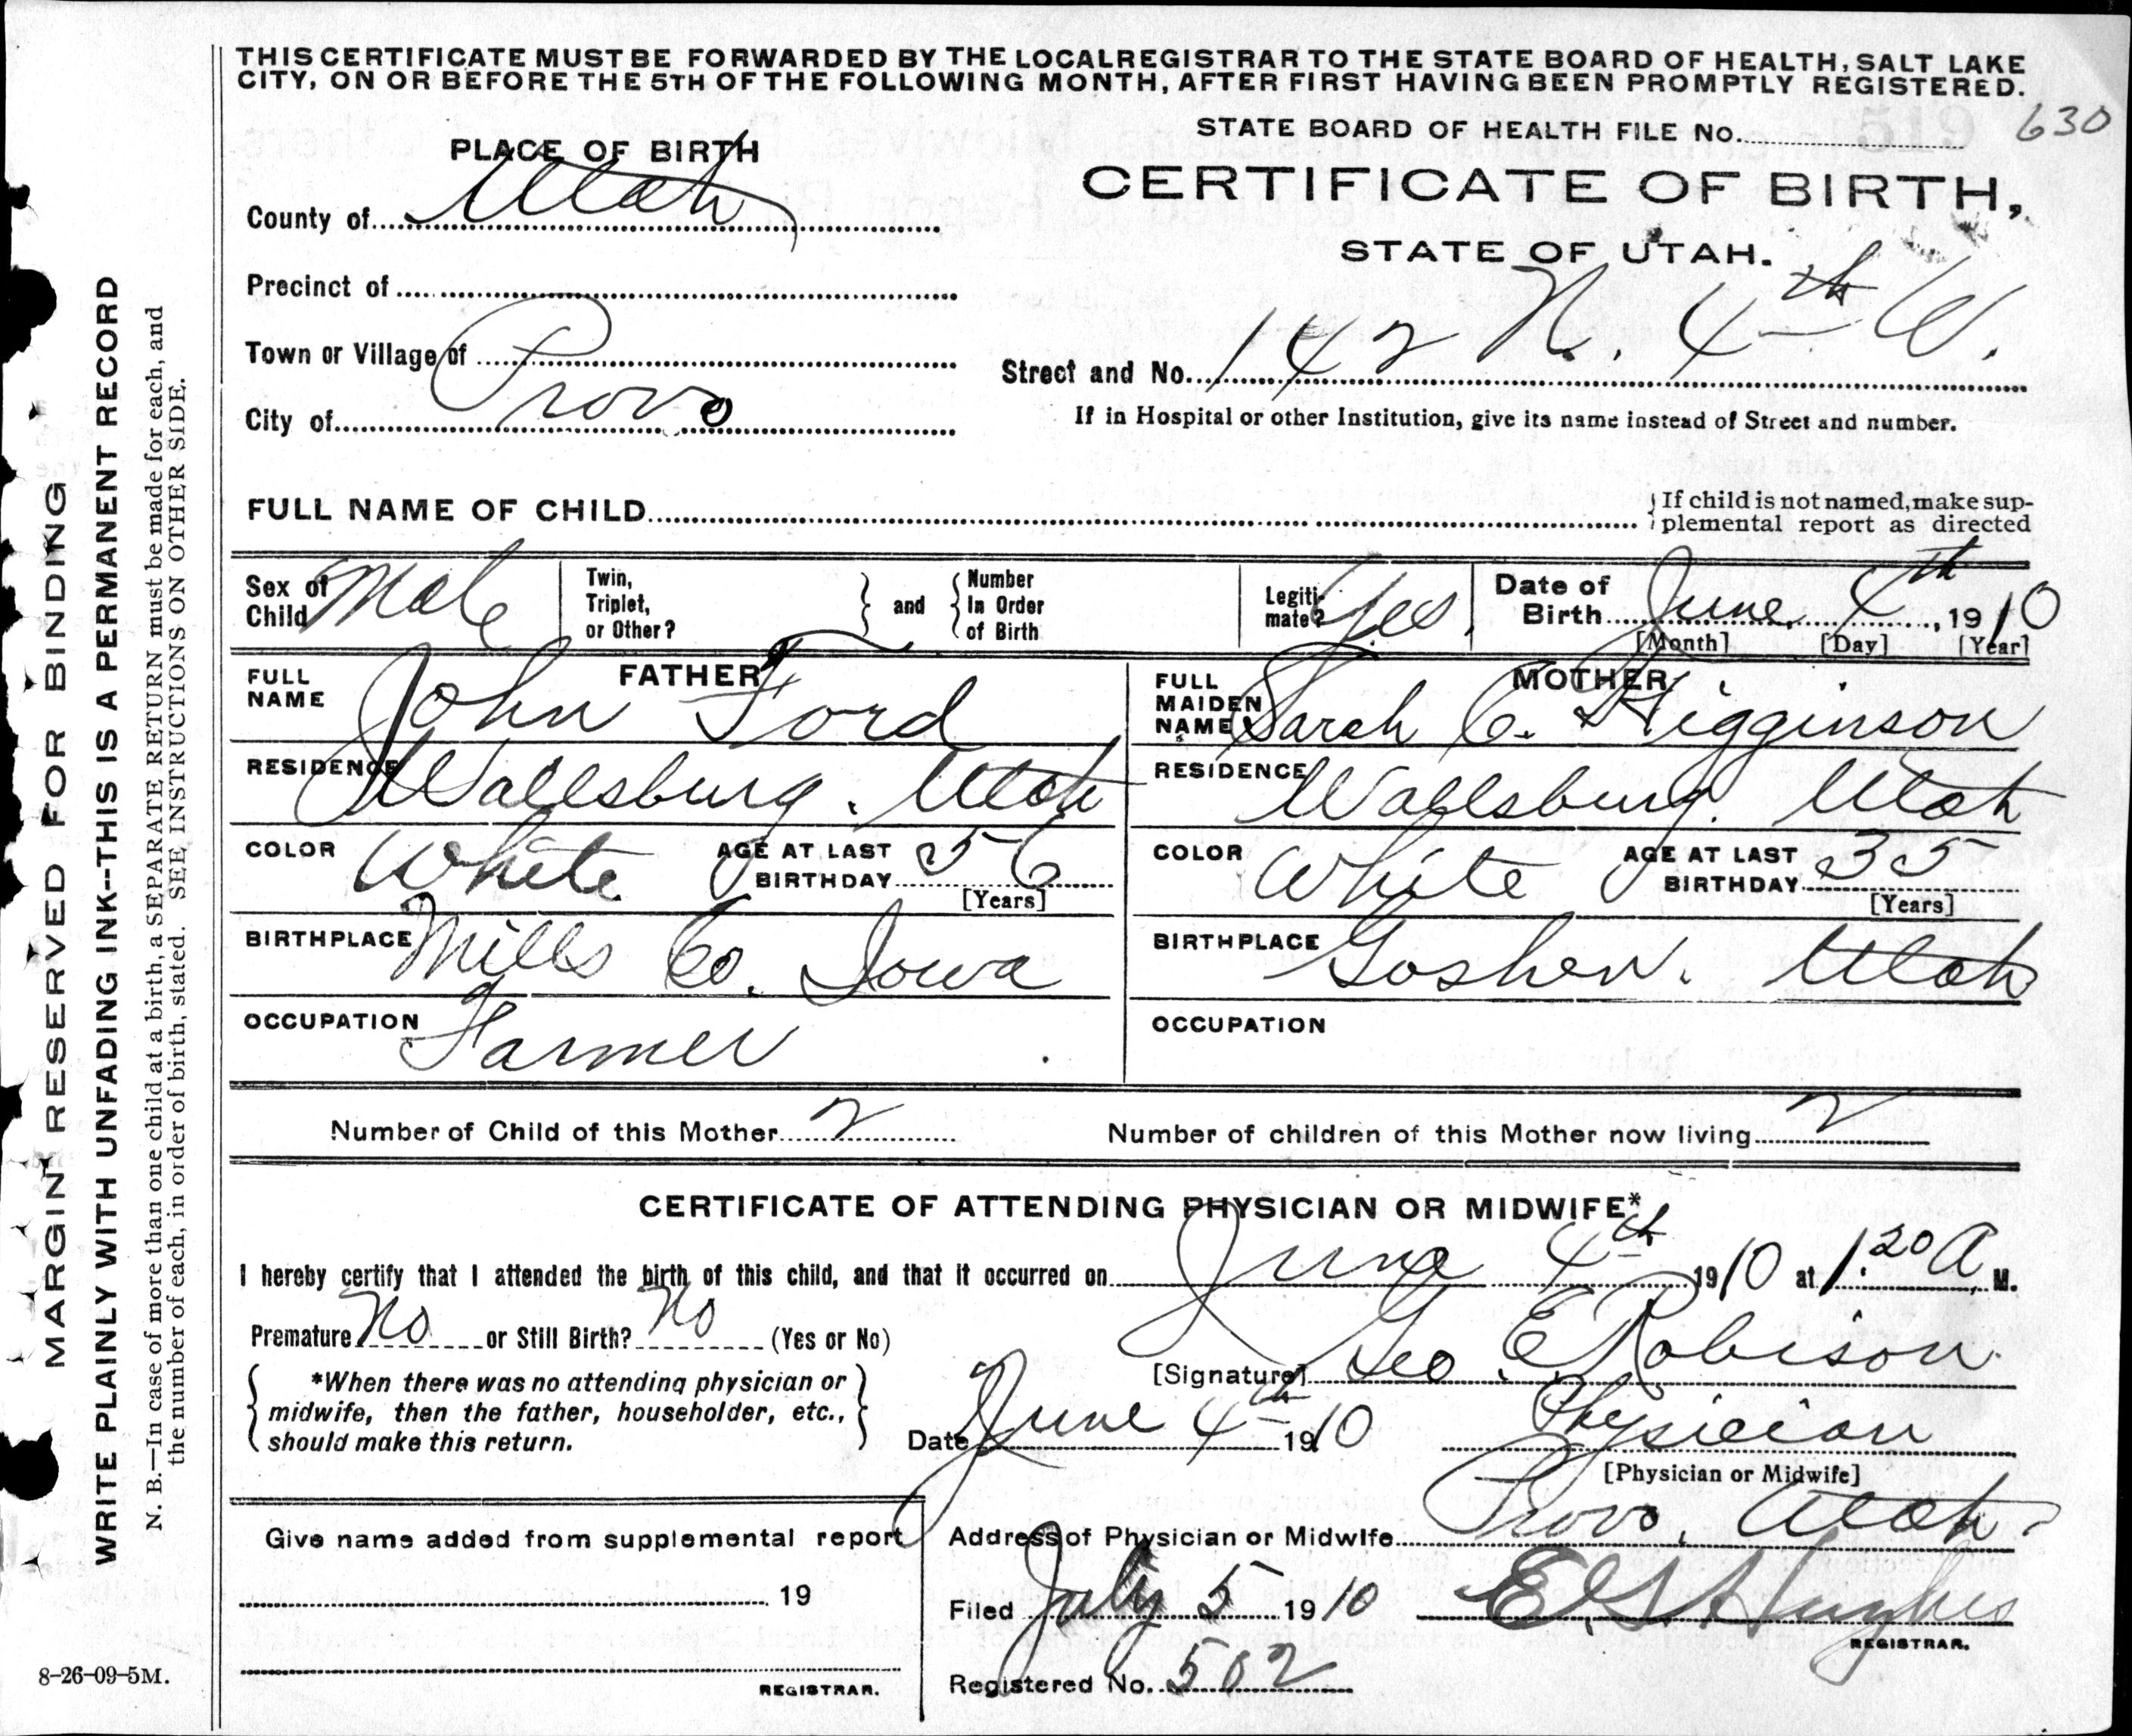 THIS CERTIFICATE MUST BE FORWARDED BY THE LOCAL REGISTRAR TO THE STATE BOARD OF HEALTH, SALT LAKE
CITY, ON OR BEFORE THE 5TH OF THE FOLLOWING MONTH, AFTER FIRST HAVING BEEN PROMPTLY REGISTERED.
STATE BOARD OF HEALTH FILE No. 630
PLACE OF BIRTH
CERTIFICATE OF BIRTH,
STATE OF UTAH.
County of Utah
Precinct of
Town or Village of
City of Provo
Street and No. 142 N. 4th W.
If in Hospital or other Institution, give its name instead of Street and number.
FULL NAME OF CHILD
If child is not named, make sup-
plemental report as directed
Sex of Child Male
Twin, Triplet, or Other?
and
Number In Order of Birth
Legiti-mate? Yes.
Date of Birth June 4th, 1910
[Month] [Day] [Year]
FATHER
FULL NAME John Ford
RESIDENCE Wallsburg. Utah
COLOR White
AGE AT LAST BIRTHDAY 56
[Years]
BIRTHPLACE Mills Co. Iowa
OCCUPATION Farmer
MOTHER
FULL MAIDEN NAME Sarah C. Higginson
RESIDENCE Wallsburg. Utah
COLOR White
AGE AT LAST BIRTHDAY 35
[Years]
BIRTHPLACE Goshen. Utah
OCCUPATION
Number of Child of this Mother 2
Number of children of this Mother now living 2
CERTIFICATE OF ATTENDING PHYSICIAN OR MIDWIFE*
I hereby certify that I attended the birth of this child, and that it occurred on June 4th 1910 at 1:20 A M.
Premature No or Still Birth? No (Yes or No)
[Signature] Geo. E Robison
*When there was no attending physician or
midwife, then the father, householder, etc.,
should make this return.
Date June 4th 1910
Physician
[Physician or Midwife]
Address of Physician or Midwife Provo, Utah
Give name added from supplemental report
19
REGISTRAR.
Filed July 5 1910
Hughes
REGISTRAR.
Registered No. 502
8-26-09-5M.
MARGIN RESERVED FOR BINDING
WRITE PLAINLY WITH UNFADING INK--THIS IS A PERMANENT RECORD
N. B.—In case of more than one child at a birth, a SEPARATE RETURN must be made for each, and
the number of each, in order of birth, stated. SEE INSTRUCTIONS ON OTHER SIDE.